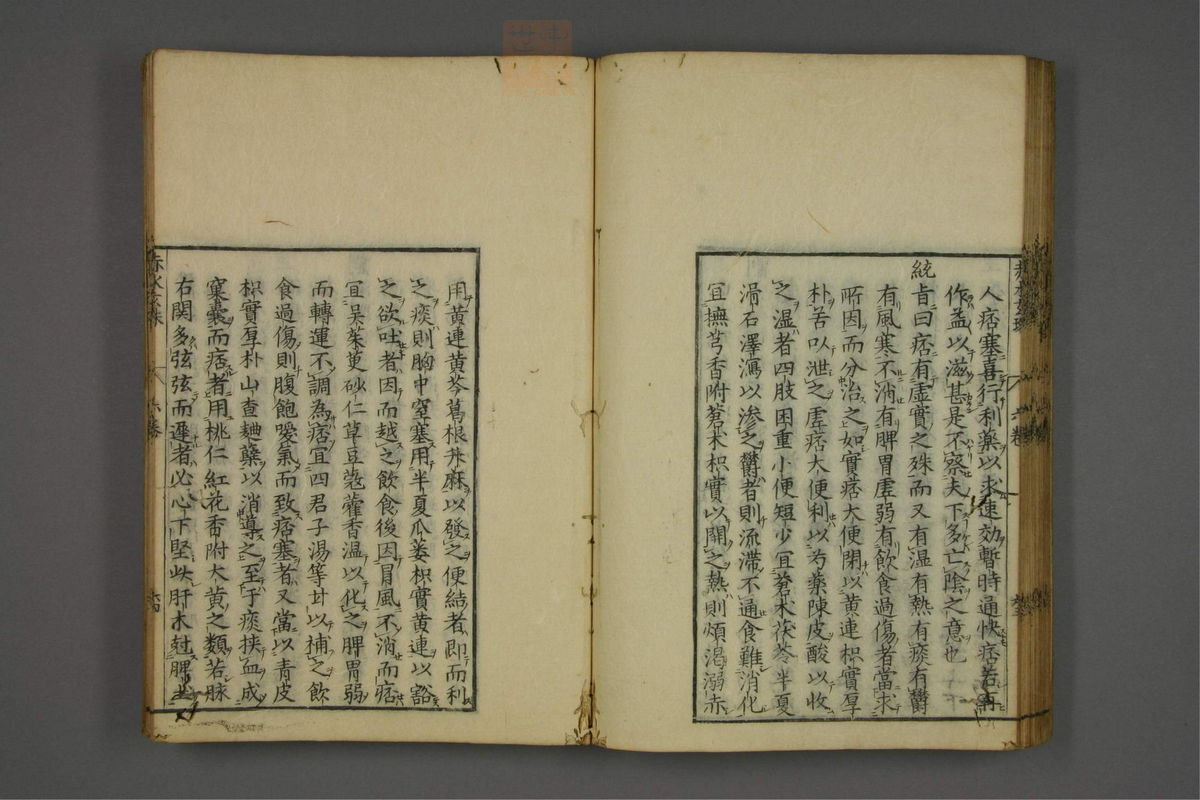 人痞塞喜行利藥以求速効暫時通快痞若再
作益以滋甚是不察夫下多亡陰之意也
統旨曰痞有虛實之殊而又有濕有熱有痰有欝
有風寒不消有脾胃虛弱有飲食過傷者當求
所因而分治之如實痞大便閉以黄連枳實厚
朴苦以泄之虛痞大便利以芍藥陳皮酸以收
之濕者四肢困重小便短少宜蒼术茯苓半夏
滑石澤瀉以渗之欝者則流滞不通食難消化
宜撫芎香附蒼术枳實以開之熱則煩渴溺赤
用黄連黄芩葛根升麻以發之便結者即而利
之痰則胸中窒塞用半夏瓜蔞枳實黄連以豁
之欲吐者因而越之飲食後因冒風不消而痞
宜吴茱萸砂仁草豆蔲藿香温以化之脾胃弱
而轉運不調為痞宜四君子湯等甘以補之飲
食過傷則腹飽噯氣而致痞塞者又當以青皮
枳實厚朴山查麯蘖以消導之至于痰挟血成
窠囊而痞者用桃仁紅花香附大黄之類若脉
右関多弦弦而遲者必心下堅此肝木尅脾土
赤水玄珠
六卷